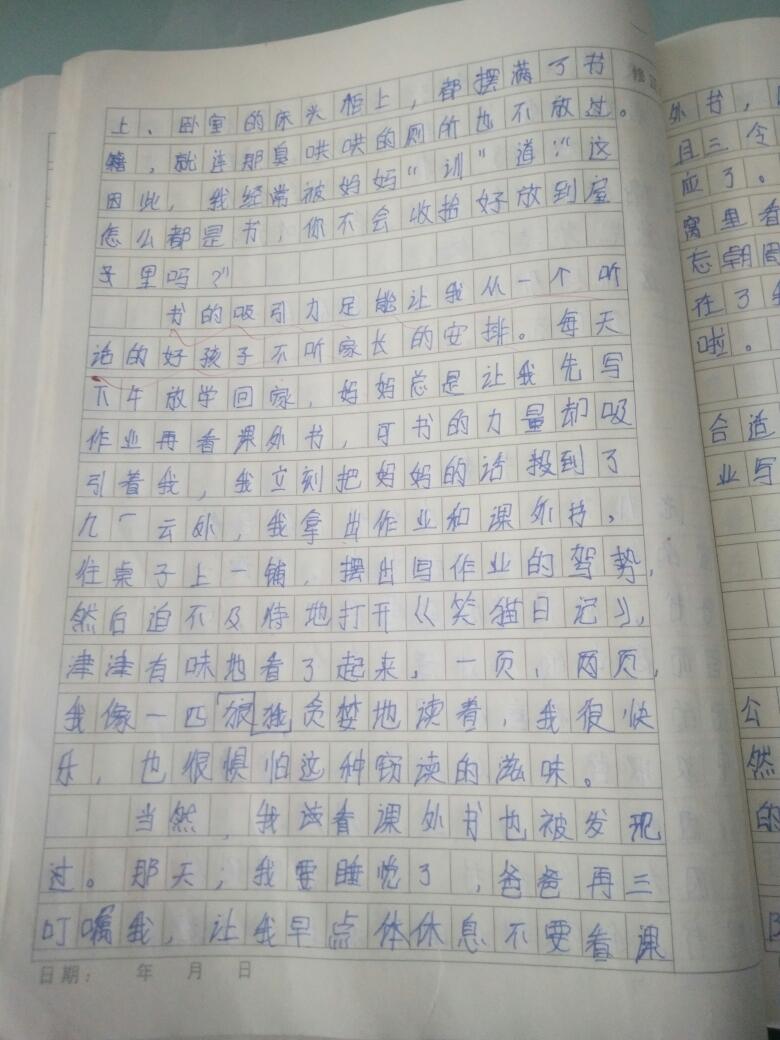 上、卧室的床头柜上,都摆满了书
籍,就连那臭哄哄的厕所也不放过。
因此,我经常被妈妈“训”道:“这
怎么都是书,你不会收拾好放到屋
子里吗?”
书的吸引力足能让我从一个听
话的好孩子不听家长的安排。每天
下午放学回家,妈妈总是让我先写
作业再看课外书,可书的力量却吸
引着我,我立刻把妈妈的话投到了
九一云外,我拿出作业和课外书,
往桌子上一铺,摆出写作业的驾势,
然后迫不及待地打开《笑猫日记》,
津津有味地看了起来,一页,两页,
我像一匹狼独贪婪地读着,我很快
乐,也很惧怕这种窃读的滋味。
当然,我读看课外书也被发现
过。那天,我要睡觉了,爸爸再三
叮嘱我,让我早点体休息不要看课
日期: 年 月 日
外书,
且三令
应了。
窝里看
忘朝
在了我
啦。
合适
业写
公
然
的